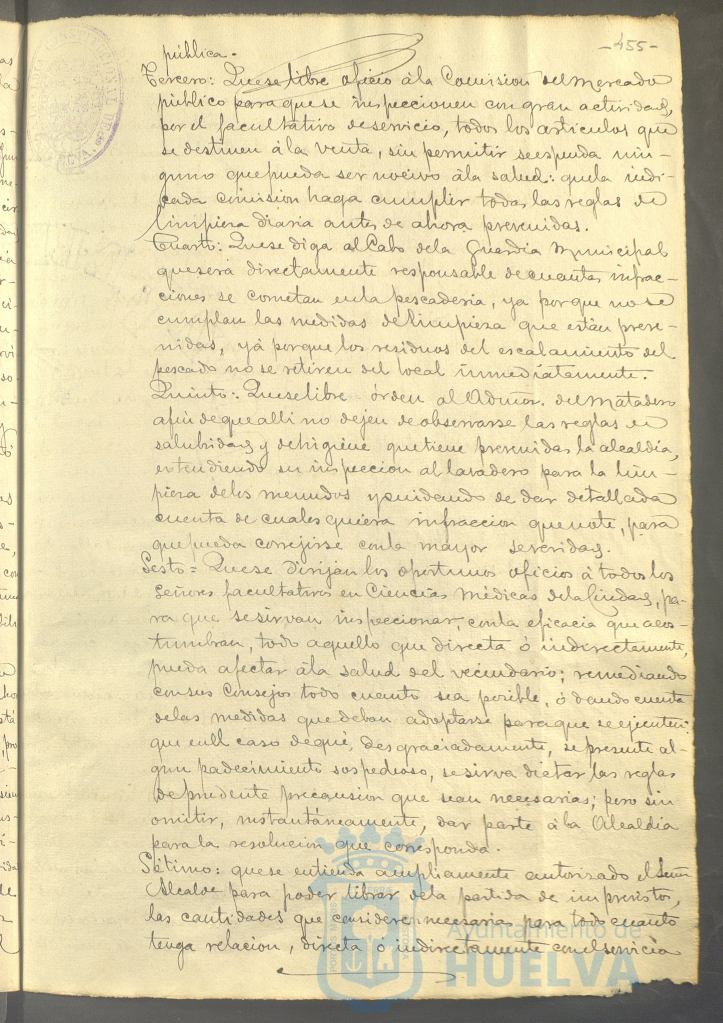 -455-
pública.
Tercero: Que se libre oficio á la Comision del Mercado
público para que se inspeccionen con gran actividad,
por el facultativo de servicio, todos los articulos que
se destinen á la venta, sin permitir se espenda nin-
guno que pueda ser nocivo á la salud: que la indi-
cada comision haga cumplir todas las reglas de
limpieza diaria antes de ahora prevenidas.
Cuarto: Que se diga al Cabo de la Guardia Municipal
que será directamente responsable de cuantas infrac-
ciones se cometan en la pescaderia, ya porque no se
cumplan las medidas de limpieza que están preve-
nidas, yá porque los residuos del escalamiento del
pescado no se retiren del local inmediatamente.
Quinto: Que se libre órden al Admor. del Matadero
afin de que alli no dejen de observarse las reglas de
salubridad y de higiene que tiene prevenidas la alcaldia,
estendiendo su inspeccion al lavadero para la lim-
pieza de los menudos y cuidando de dar detallada
cuenta de cuales quiera infraccion que note, para
que pueda correjirse con la mayor severidad.
Sesto= Que se dirijan los oportunos oficios á todos los
Señores facultativos en Ciencias Médicas de la Ciudad, pa-
ra que se sirvan inspeccionar, con la eficacia que acos-
tumbran, todo aquello que directa ó indirectamente,
pueda afectar á la salud del vecindario; remediando
con sus Consejos todo cuanto sea posible, ó dando cuenta
de las medidas que deban adoptarse para que se ejecuten:
que en el caso de qué, desgraciadamente, se presente al-
gun padecimiento sospechoso, se sirva dictar las reglas
de prudente precaucion que sean necesarias; pero sin
omitir, instantáneamente, dar parte á la Alcaldia
para la resolucion que corresponda.
Sétimo: que se entienda ampliamente autorizado el Señor
Alcalde para poder librar de la partida de imprevistos,
las cantidades que considere necesarias para todo cuanto
tenga relacion, directa ó indirectamente con el servicio
Ayuntamiento de
HUELVA